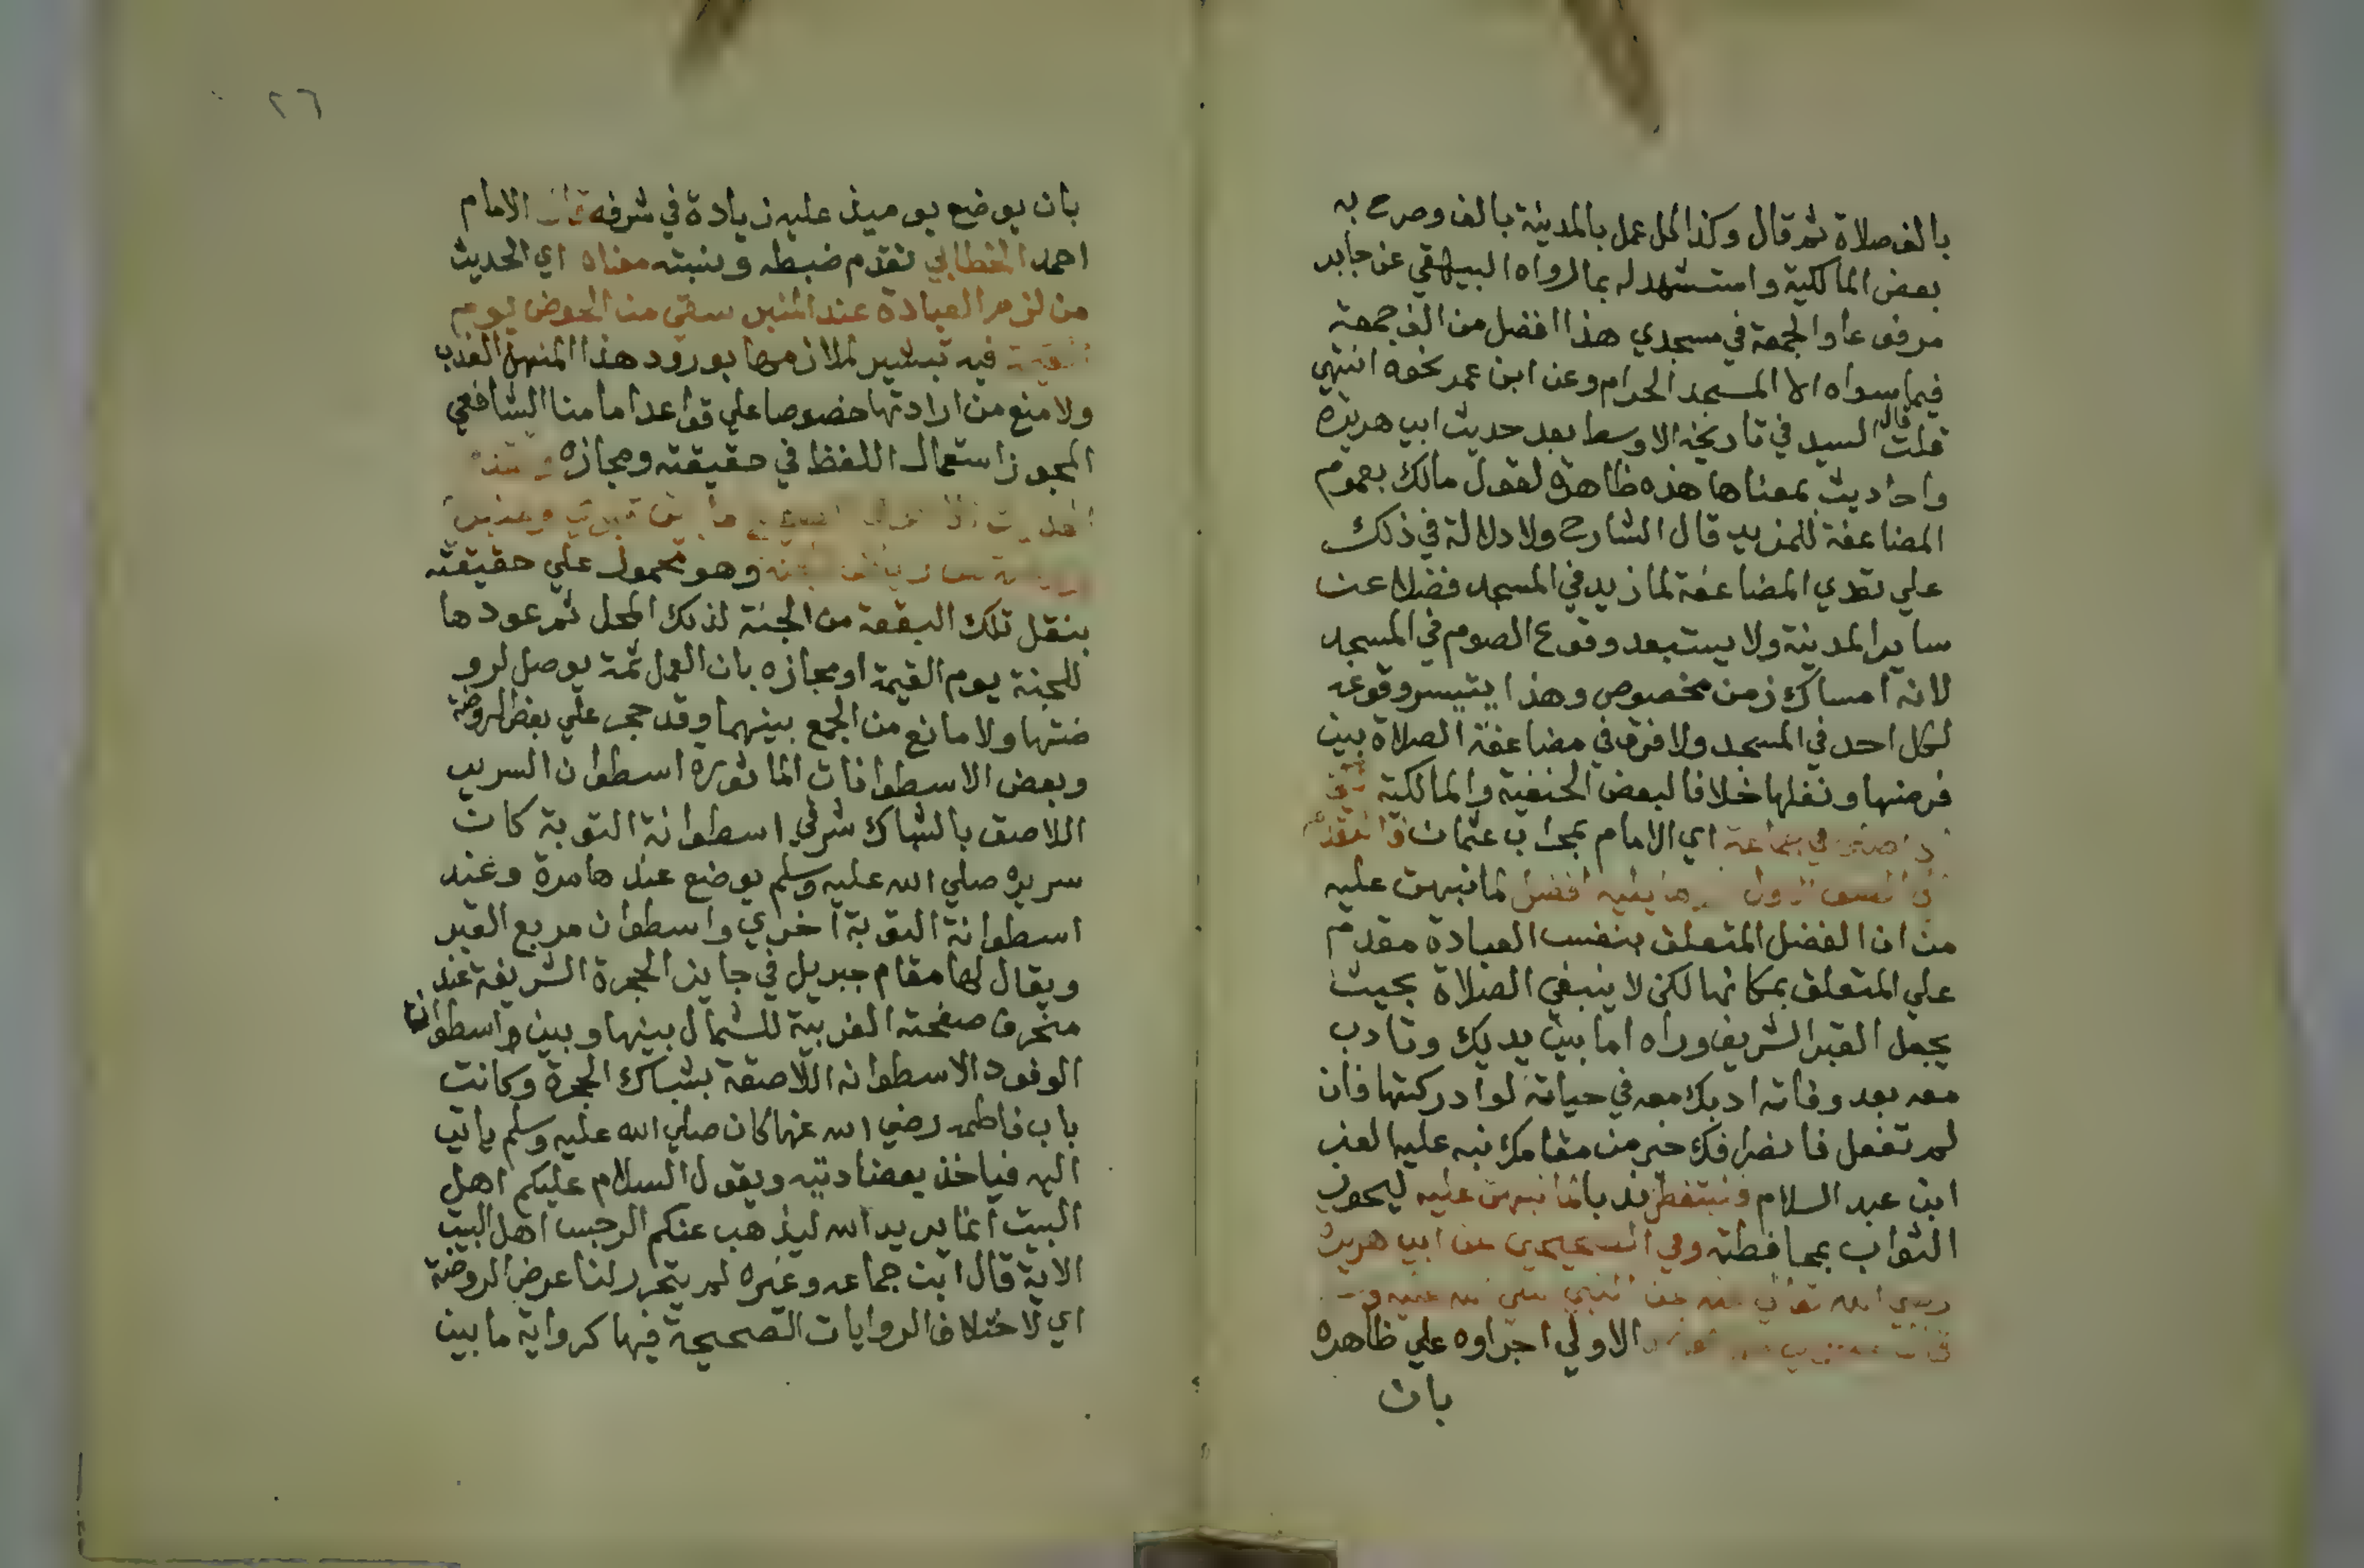 بالف صلاة ثم قال وكذا كل عمل بالمدينة بالف وصرح به
بعض المالكية واستشهد له بما رواه البيهقي عن جابر
مرفوعا والجمعة في مسجدي هذا افضل من الف جمعة
فيما سواه الا المسجد الحرام وعن ابن عمر نحوه انتهي
قلت قال السيد في تاريخه الاوسط بعد حديث ابي هريرة
واحاديث بمعناها هذه ظاهرة لقول مالك بعموم
المضاعفة للمزيد قال الشارح ولا دلالة في ذلك
علي تعدي المضاعفة لما زيد في المسجد فضلا عن
ساير المدينة ولا يستبعد وقوع الصوم في المسجد
لانه امساك زمن مخصوص وهذا يتيسر وقوعه
لكل احد في المسجد ولا فرق في مضاعفة الصلاة بين
فرضها ونفلها خلافا لبعض الحنفية والمالكية
في جماعة اي الامام بمحراب عثمان فالتقدم
الاول وما يليه افضل لما نبهت عليه
من ان الفضل المتعلق بنفس العبادة مقدم
علي المتعلق بمكانها لكن لا ينبغي الصلاة بحيث
يجعل القبر الشريف وراه اما بين يديك وتادب
معه بعد وفاته ادبك معه في حياته لو ادركتها فان
لم تفعل فانصرافك خير من مقامك نبه عليه العز
ابن عبد السلام فتتفطن ندبا لما نبهت عليه ليحوز
الثواب بمحافظته وفي الصحيحين عن ابي هريرة
رضي الله تعالي عنه عن النبي صلي الله عليه و
قال الاولي اجراوه علي ظاهره
بان
٢٦
بان يوضع يوميذ عليه زيادة في شرفه قال الامام
احمد الخطابي تقدم ضبطه ونسبته معناه اي الحديث
من لزم العبادة عند المنبر سقي من الحوض يوم
القيمة فيه تبشير لملازمها بورود هذا المنهل العذب
ولا منع من ارادتها خصوصا علي قواعد امامنا الشافعي
المجوز استعمال اللفظ في حقيقته ومجازه
ما بين قبري ومنبري
روضة من رياض الجنة وهو محمول علي حقيقته
بنقل تلك البقعة من الجنة لذلك المحل ثم عودها
للجنة يوم القيمة او مجازه بان العمل ثمة يوصل لرو
ضتها ولا مانع من الجمع بينهما وقد حجر علي بعض الروضة
وبعض الاسطوانات الماثورة اسطوان السرير
اللاصق بالشباك شرقي اسطوانة التوبة كان
سريره صلي الله عليه وسلم يوضع عندها مرة وعند
اسطوانة التوبة اخري واسطوان مربع القبر
ويقال لها مقام جبريل في جايز الحجرة الشريفة عند
منحرف صفحته الغربية للشمال بينها وبين واسطوانة
الوفود الاسطوانه اللاصقة بشباك الحجرة وكانت
باب فاطمه رضي الله عنها كان صلي الله عليه وسلم ياتي
اليه فياخذ بعضادتيه ويقول السلام عليكم اهل
البيت انما يريد الله ليذهب عنكم الرجس اهل البيت
الاية قال ابن جماعه وغيره لم يتحرر لنا عرض الروضة
اي لاختلاف الروايات الصحيحة فيها كرواية ما بين